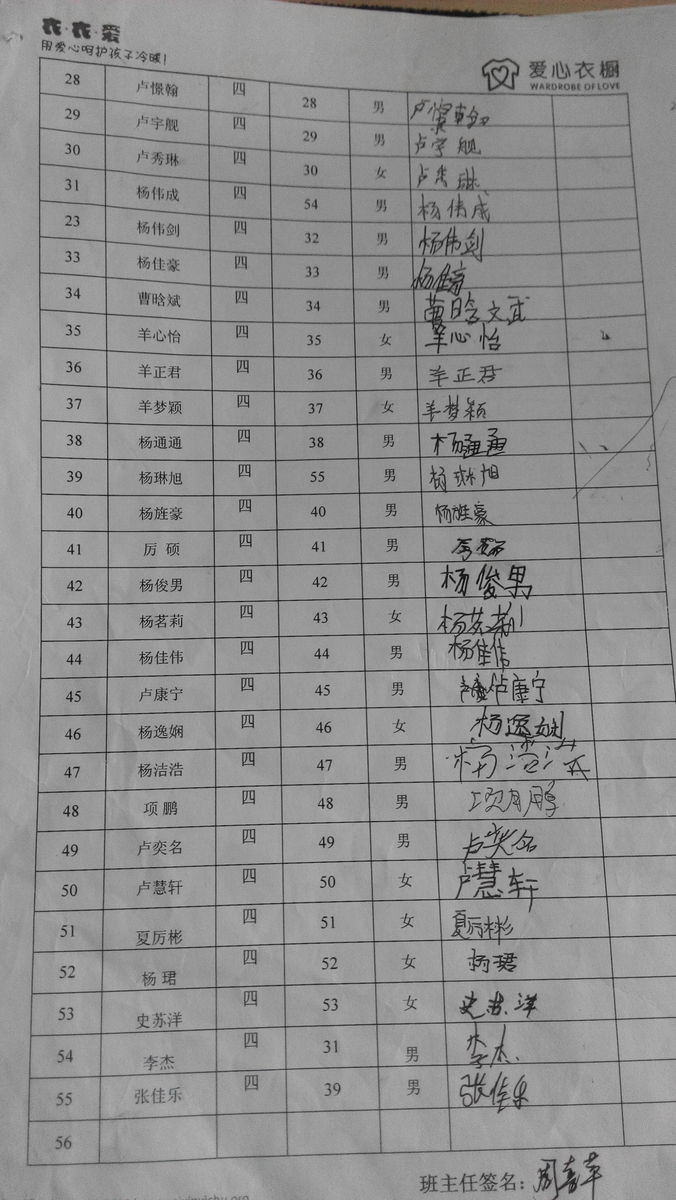 衣·衣·爱
用爱心呵护孩子冷暖!
爱心衣橱
WARDROBE OF LOVE
28 卢憬翰 四 28 男 卢憬翰
29 卢宇舰 四 29 男 卢宇舰
30 卢秀琳 四 30 女 卢秀琳
31 杨伟成 四 54 男 杨伟成
23 杨伟剑 四 32 男 杨伟剑
33 杨佳豪 四 33 男 杨佳豪
34 曹晗斌 四 34 男 曹晗斌
35 羊心怡 四 35 女 羊心怡
36 羊正君 四 36 男 羊正君
37 羊梦颖 四 37 女 羊梦颖
38 杨通通 四 38 男 杨通通
39 杨琳旭 四 55 男 杨琳旭
40 杨旌豪 四 40 男 杨旌豪
41 厉 硕 四 41 男
42 杨俊男 四 42 男 杨俊男
43 杨茗莉 四 43 女 杨茗莉
44 杨佳伟 四 44 男 杨佳伟
45 卢康宁 四 45 男 卢康宁
46 杨逸娴 四 46 女 杨逸娴
47 杨洁浩 四 47 男 杨洁浩
48 项 鹏 四 48 男 项鹏
49 卢奕名 四 49 男 卢奕名
50 卢慧轩 四 50 女 卢慧轩
51 夏厉彬 四 51 女 夏厉彬
52 杨 珺 四 52 女 杨珺
53 史苏洋 四 53 女 史苏洋
54 李杰 四 31 男 李杰
55 张佳乐 四 39 男 张佳乐
56
班主任签名:周喜苹